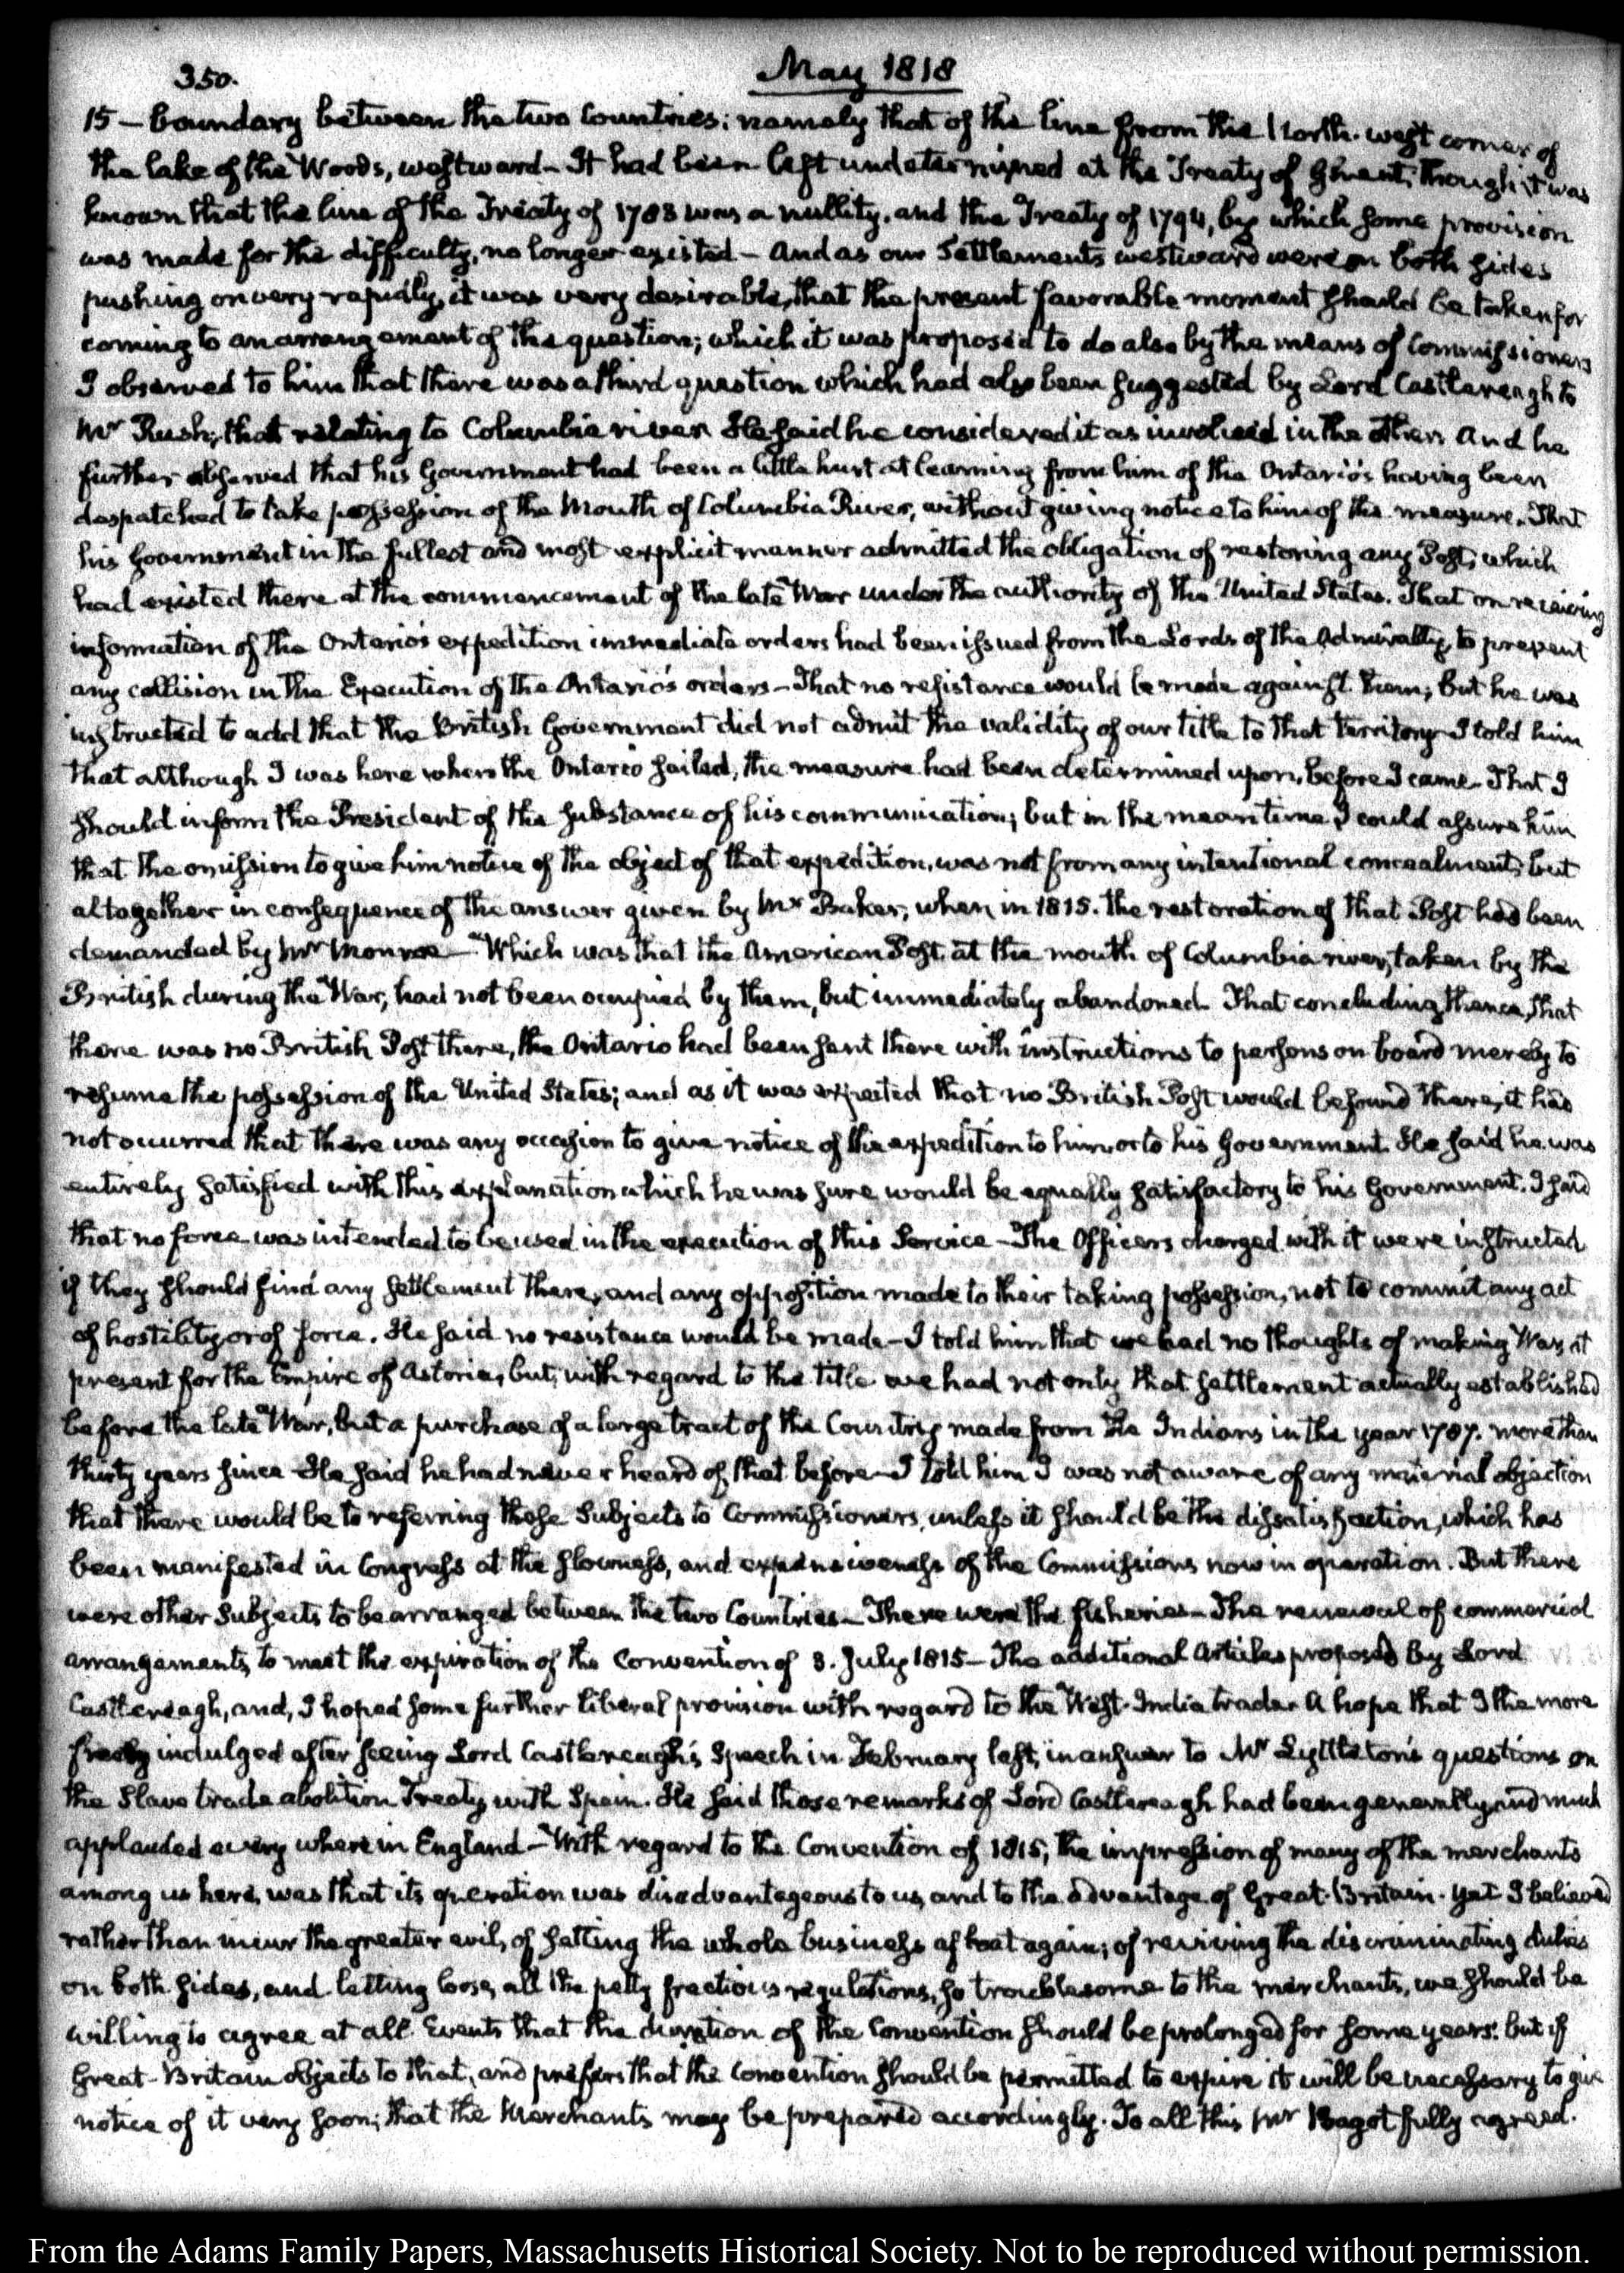 350.
May 1818
15 — boundary between the two Countries: namely that of the line from the North-west corner of
the lake of the Woods, westward — It had been left undetermined at the Treaty of Ghent, though it was
known that the line of the Treaty of 1783 was a nullity, and the Treaty of 1794, by which some provision
was made for the difficulty, no longer existed — And as our Settlements westward were on both sides
pushing on very rapidly, it was very desirable, that the present favorable moment should be taken for
coming to an arrangement of the question; which it was proposed to do also by the means of Commissioners
I observed to him that there was a third question which had also been suggested by Lord Castlereagh to
Mr Rush; that relating to Columbia river. He said he considered it as involved in the others And he
further observed that his Government had been a little hurt at learning from him of the Ontario's having been
despatched to take possession of the Mouth of Columbia River, without giving notice to him of the measure. That
his Government in the fullest and most explicit manner admitted the obligation of restoring any Post, which
had existed there at the commencement of the late War under the authority of the United States. That on receiving
information of the Ontario's expedition immediate orders had been issued from the Lords of the Admiralty, to prevent
any collision in the Execution of the Ontario's orders — That no resistance would be made against them; but he was
instructed to add that the British Government did not admit the validity of our title to that territory — I told him
that although I was here when the Ontario sailed, the measure had been determined upon, before I came — That I
should inform the President of the substance of his communication; but in the mean time I could assure him
that the omission to give him notice of the object of that expedition, was not from any intentional concealment, but
altogether in consequence of the answer given by Mr Baker, when in 1815. the restoration of that Post had been
demanded by Mr Monroe — Which was that the American Post at the mouth of Columbia river, taken by the
British during the War, had not been occupied by them, but immediately abandoned. That concluding thence, that
there was no British Post there, the Ontario had been sent there with instructions to persons on board merely to
resume the possession of the United States; and as it was expected that no British Post would be found there, it had
not occurred that there was any occasion to give notice of the expedition to him or to his Government. He said he was
entirely satisfied with this explanation which he was sure would be equally satisfactory to his Government. I said
that no force was intended to be used in the execution of this Service — The Officers charged with it were instructed
if they should find any settlement there, and any opposition made to their taking possession, not to commit any act
of hostility or of force. He said no resistance would be made — I told him that we had no thoughts of making War, at
present for the Empire of Astoria, but, with regard to the title we had not only that settlement actually established
before the late War, but a purchase of a large tract of the Country made from the Indians in the year 1787. more than
thirty years since — He said he had never heard of that before — I told him I was not aware of any material objection
that there would be to referring those Subjects to Commissioners, unless it should be the dissatisfaction, which has
been manifested in Congress at the slowness, and expensiveness of the Commissions now in operation. But there
were other Subjects to be arranged between the two Countries — There were the fisheries — The renewal of commercial
arrangements, to meet the expiration of the Convention of 3. July 1815 — The additional Articles proposed by Lord
Castlereagh, and, I hoped some further liberal provision with regard to the West-India trade. A hope that I the more
freely indulged after seeing Lord Castlereagh's Speech in February last, in answer to Mr Lyttleton's questions on
the Slave trade abolition Treaty with Spain. He said those remarks of Lord Castlereagh had been generally and much
applauded every where in England — With regard to the Convention of 1815, the impression of many of the merchants
among us here, was that its operation was disadvantageous to us, and to the advantage of Great-Britain. Yet I believed
rather than incur the greater evil, of setting the whole business afloat again; of reviving the discriminating duties
on both sides, and letting loose, all the petty fractious regulations, so troublesome to the merchants, we should be
willing to agree at all Events that the duration of the Convention should be prolonged for some years: but if
Great-Britain objects to that, and prefers that the Convention should be permitted to expire it will be necessary to give
notice of it very soon; that the Merchants may be prepared accordingly. To all this Mr Bagot fully agreed.
From the Adams Family Papers, Massachusetts Historical Society. Not to be reproduced without permission.